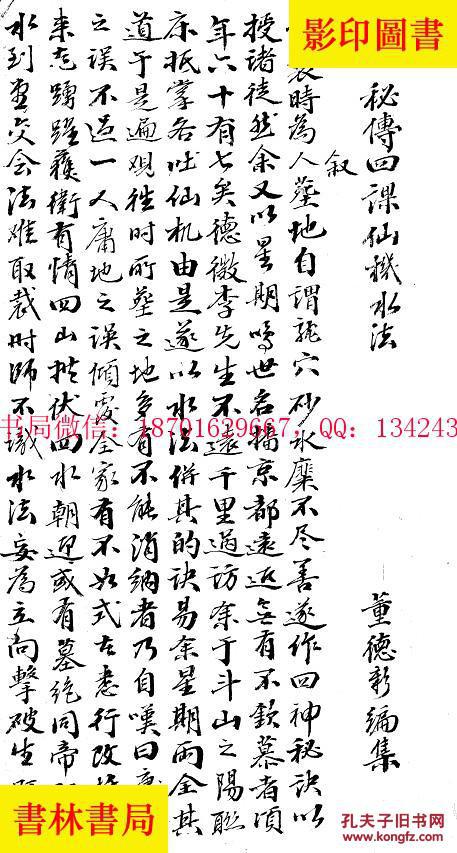 影印圖書
秘傳四課仙機水法
董德彰編集
叙
裝時為人塟地自謂龍穴砂水靡不尽善遂作四神秘訣以
授諸徒然余又以星期鳴世名播京都遠近無有不欽慕者項
年六十有七矣德微李先生不遠千里過訪余于斗山之陽聯
床抵掌各吐仙机由是遂以水法併其的訣易余星期而全其
道于是遍观徃時所塟之地多有不能消納者乃自嘆曰
之误不过一人庸地之误傾覆全家有不如式者悉行改
来志踴躍護衛有情四山拱伏四水朝迎或有墓絶同帝
水到堂交会法难取裁时师不識水法妄為立向擊破生
书局微信：18701629667；QQ：13424343
書林書局
孔夫子旧书网
kongfz.com